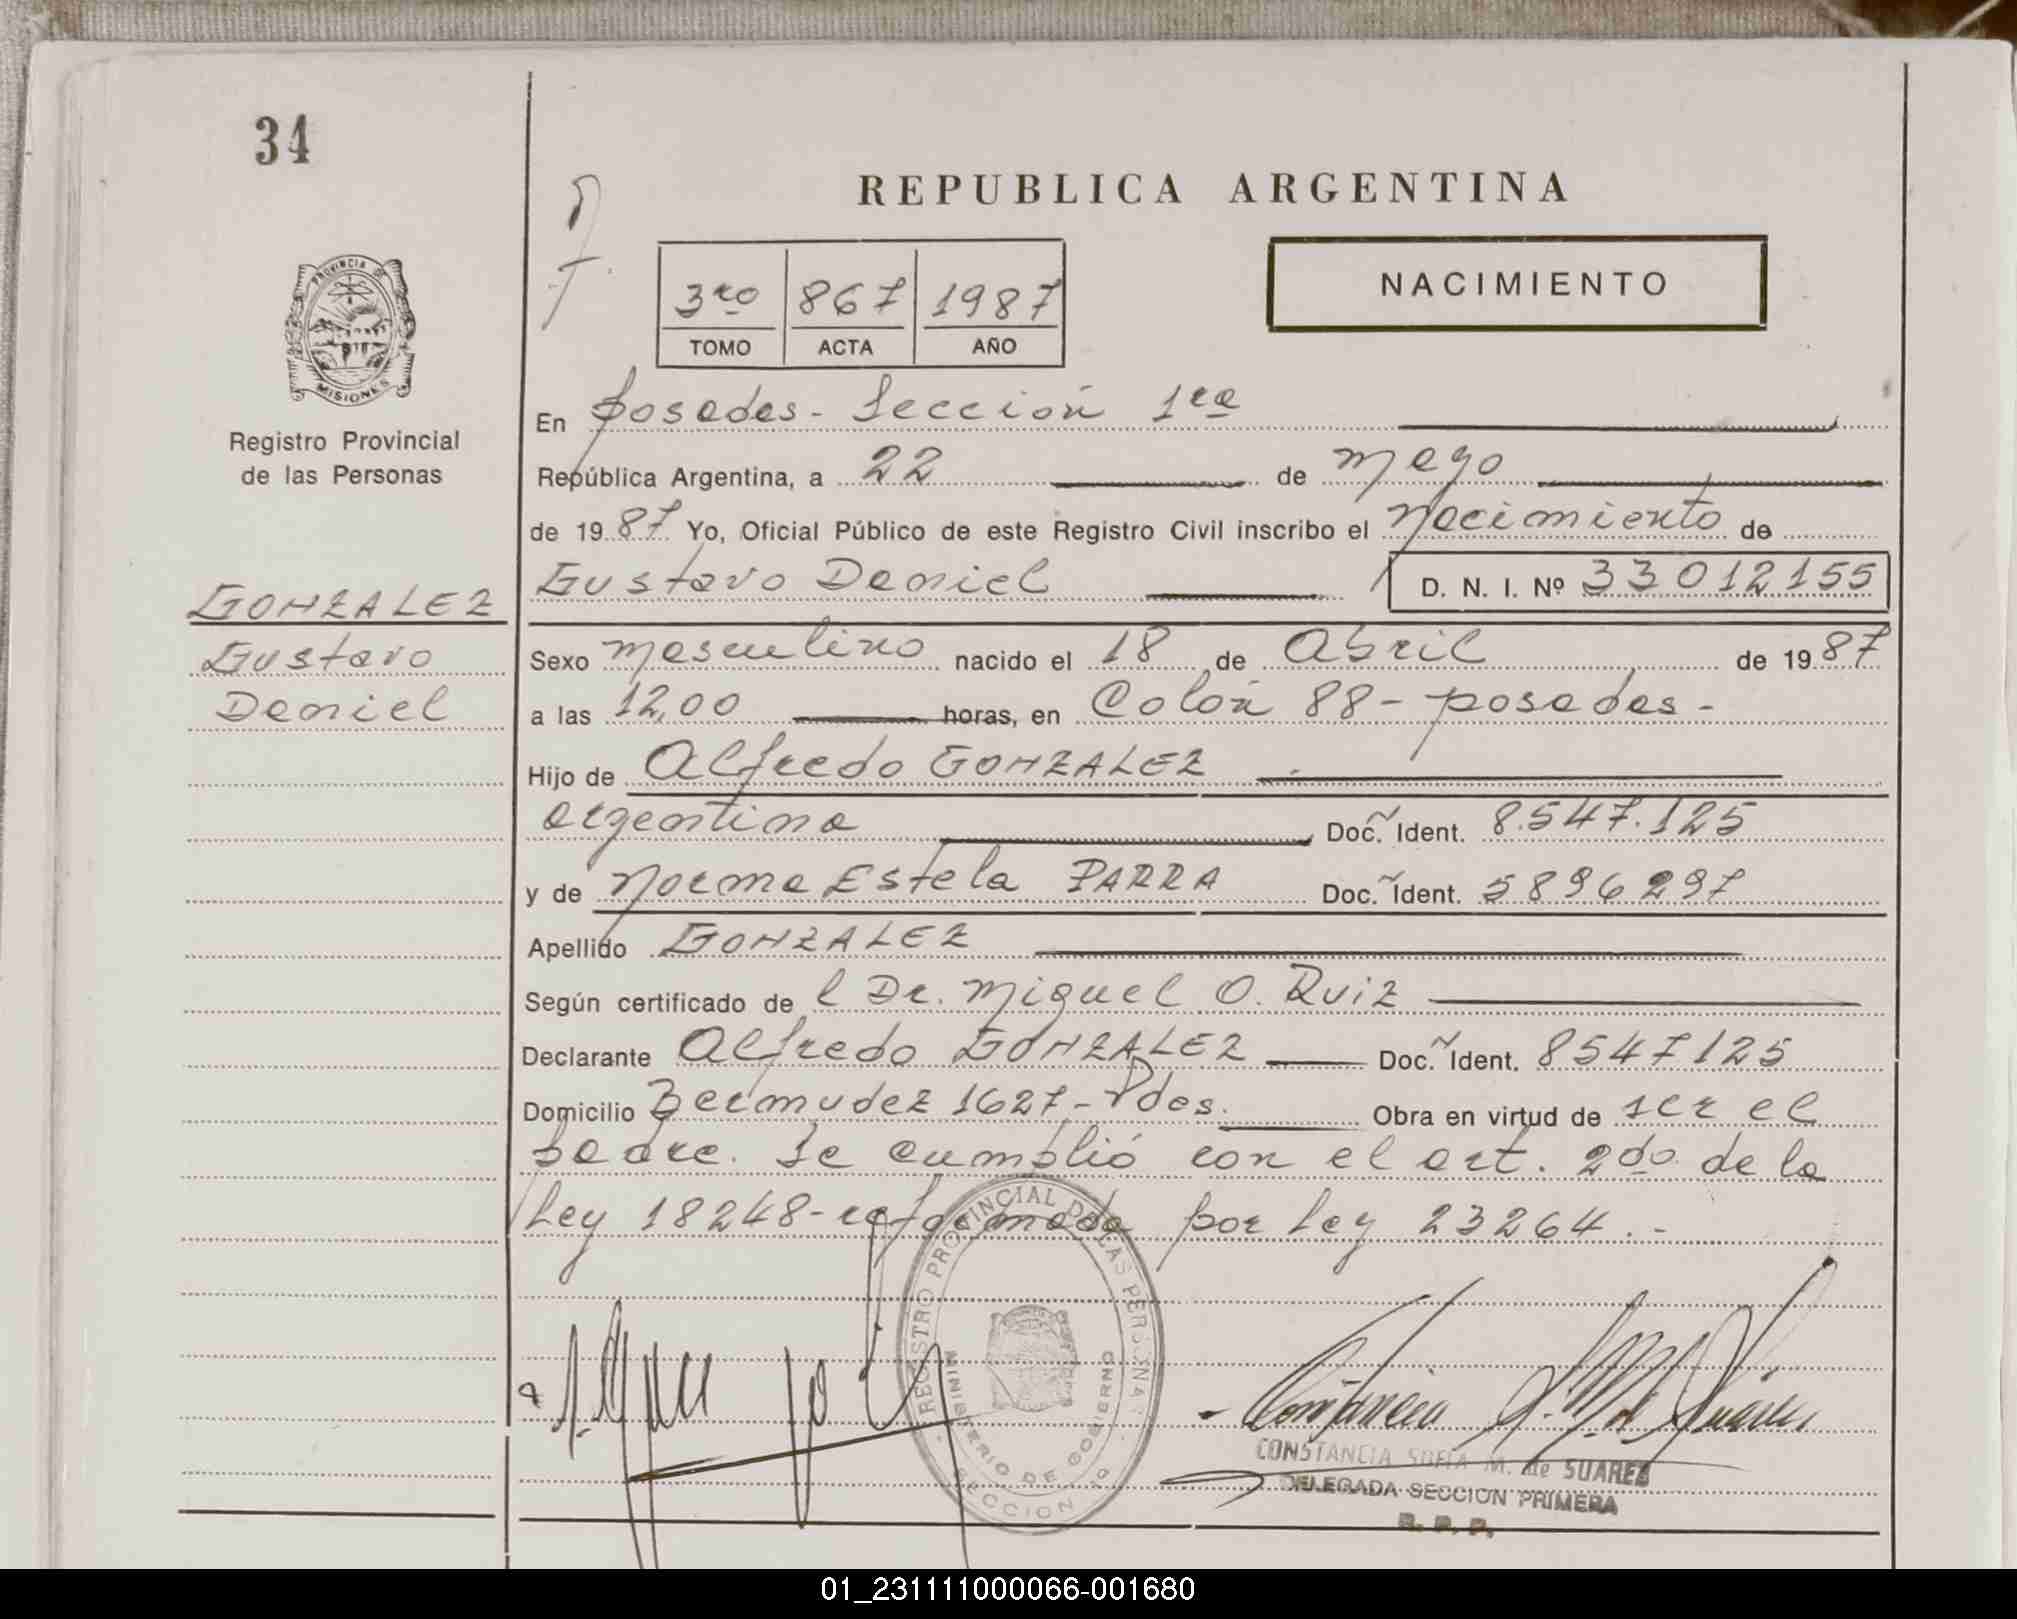 34
REPUBLICA ARGENTINA
NACIMIENTO
3ro 867 1987
TOMO ACTA AÑO
PROVINCIA DE
MISIONES
Registro Provincial
de las Personas
En Posadas - Sección 1ra
República Argentina, a 22 de mayo
de 1987 Yo, Oficial Público de este Registro Civil inscribo el Nacimiento de
Gustavo Daniel D. N. I. Nº 33012155
GONZALEZ
Gustavo
Daniel
Sexo masculino nacido el 18 de Abril de 1987
a las 12,00 horas, en Colón 88 - posadas -
Hijo de Alfredo GONZALEZ
argentina Doc. Ident. 8.547.125
y de Norma Estela PARRA Doc. Ident. 5896297
Apellido GONZALEZ
Según certificado de l Dr. Miguel O. Ruiz
Declarante Alfredo GONZALEZ Doc. Ident. 8547125
Domicilio Bermudez 1627 - Pdas. Obra en virtud de ser el
padre. Se cumplió con el art. 2do. de la
Ley 18248 - reformada por Ley 23264 . -
REGISTRO PROVINCIAL DE LAS PERSONAS
MINISTERIO DE GOBIERNO
SECCION 1º
CONSTANCIA SOFIA M. de SUAREZ
DELEGADA SECCION PRIMERA
R. P. P.
01_231111000066-001680